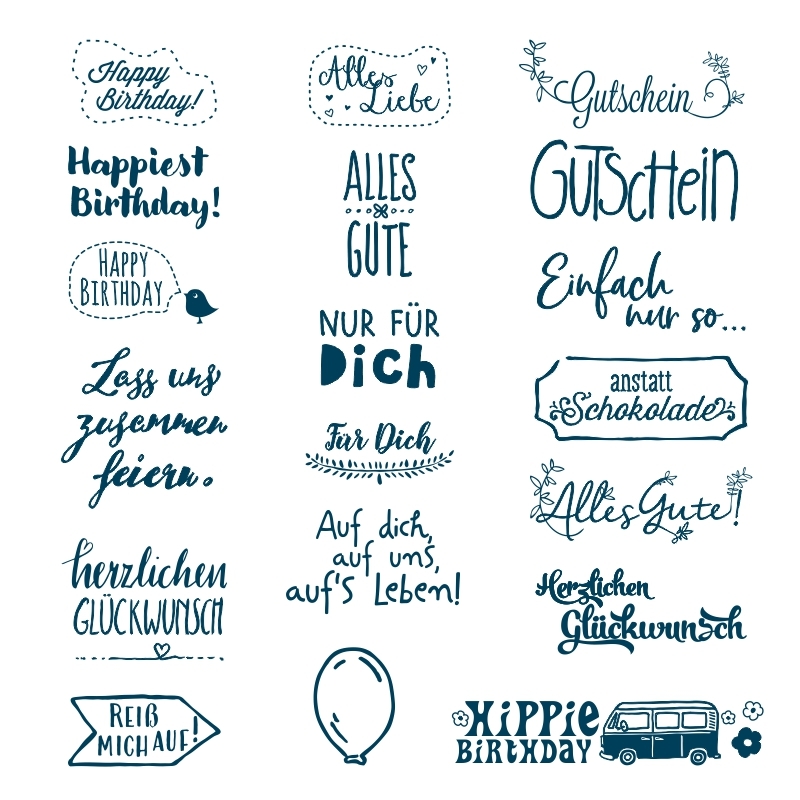 Happy
Birthday!
Happiest
Birthday!
HAPPY
BIRTHDAY
Lass uns
zusammen
feiern.
herzlichen
GLÜCKWUNSCH
REIß
MICH AUF!
Alles
Liebe
ALLES
GUTE
NUR FÜR
Dich
Für Dich
Auf dich,
auf uns,
auf's Leben!
Gutschein
GUTSCHEIN
Einfach
nur so...
anstatt
Schokolade
Alles Gute!
Herzlichen
Glückwunsch
HiPPiE
BiRTHDAY